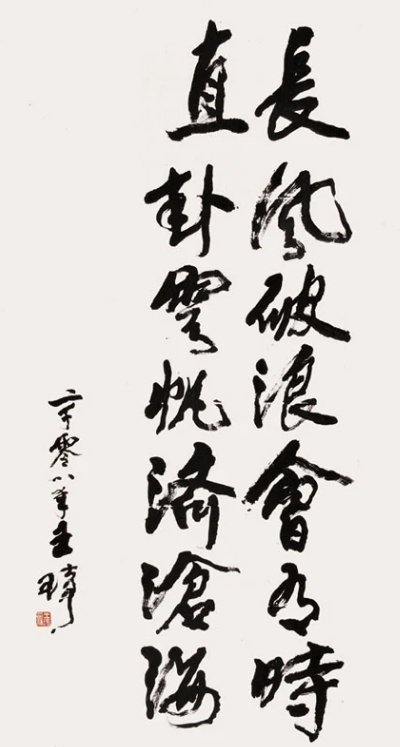 長風破浪會有時
直卦雲帆濟滄海
二千零八年王琦